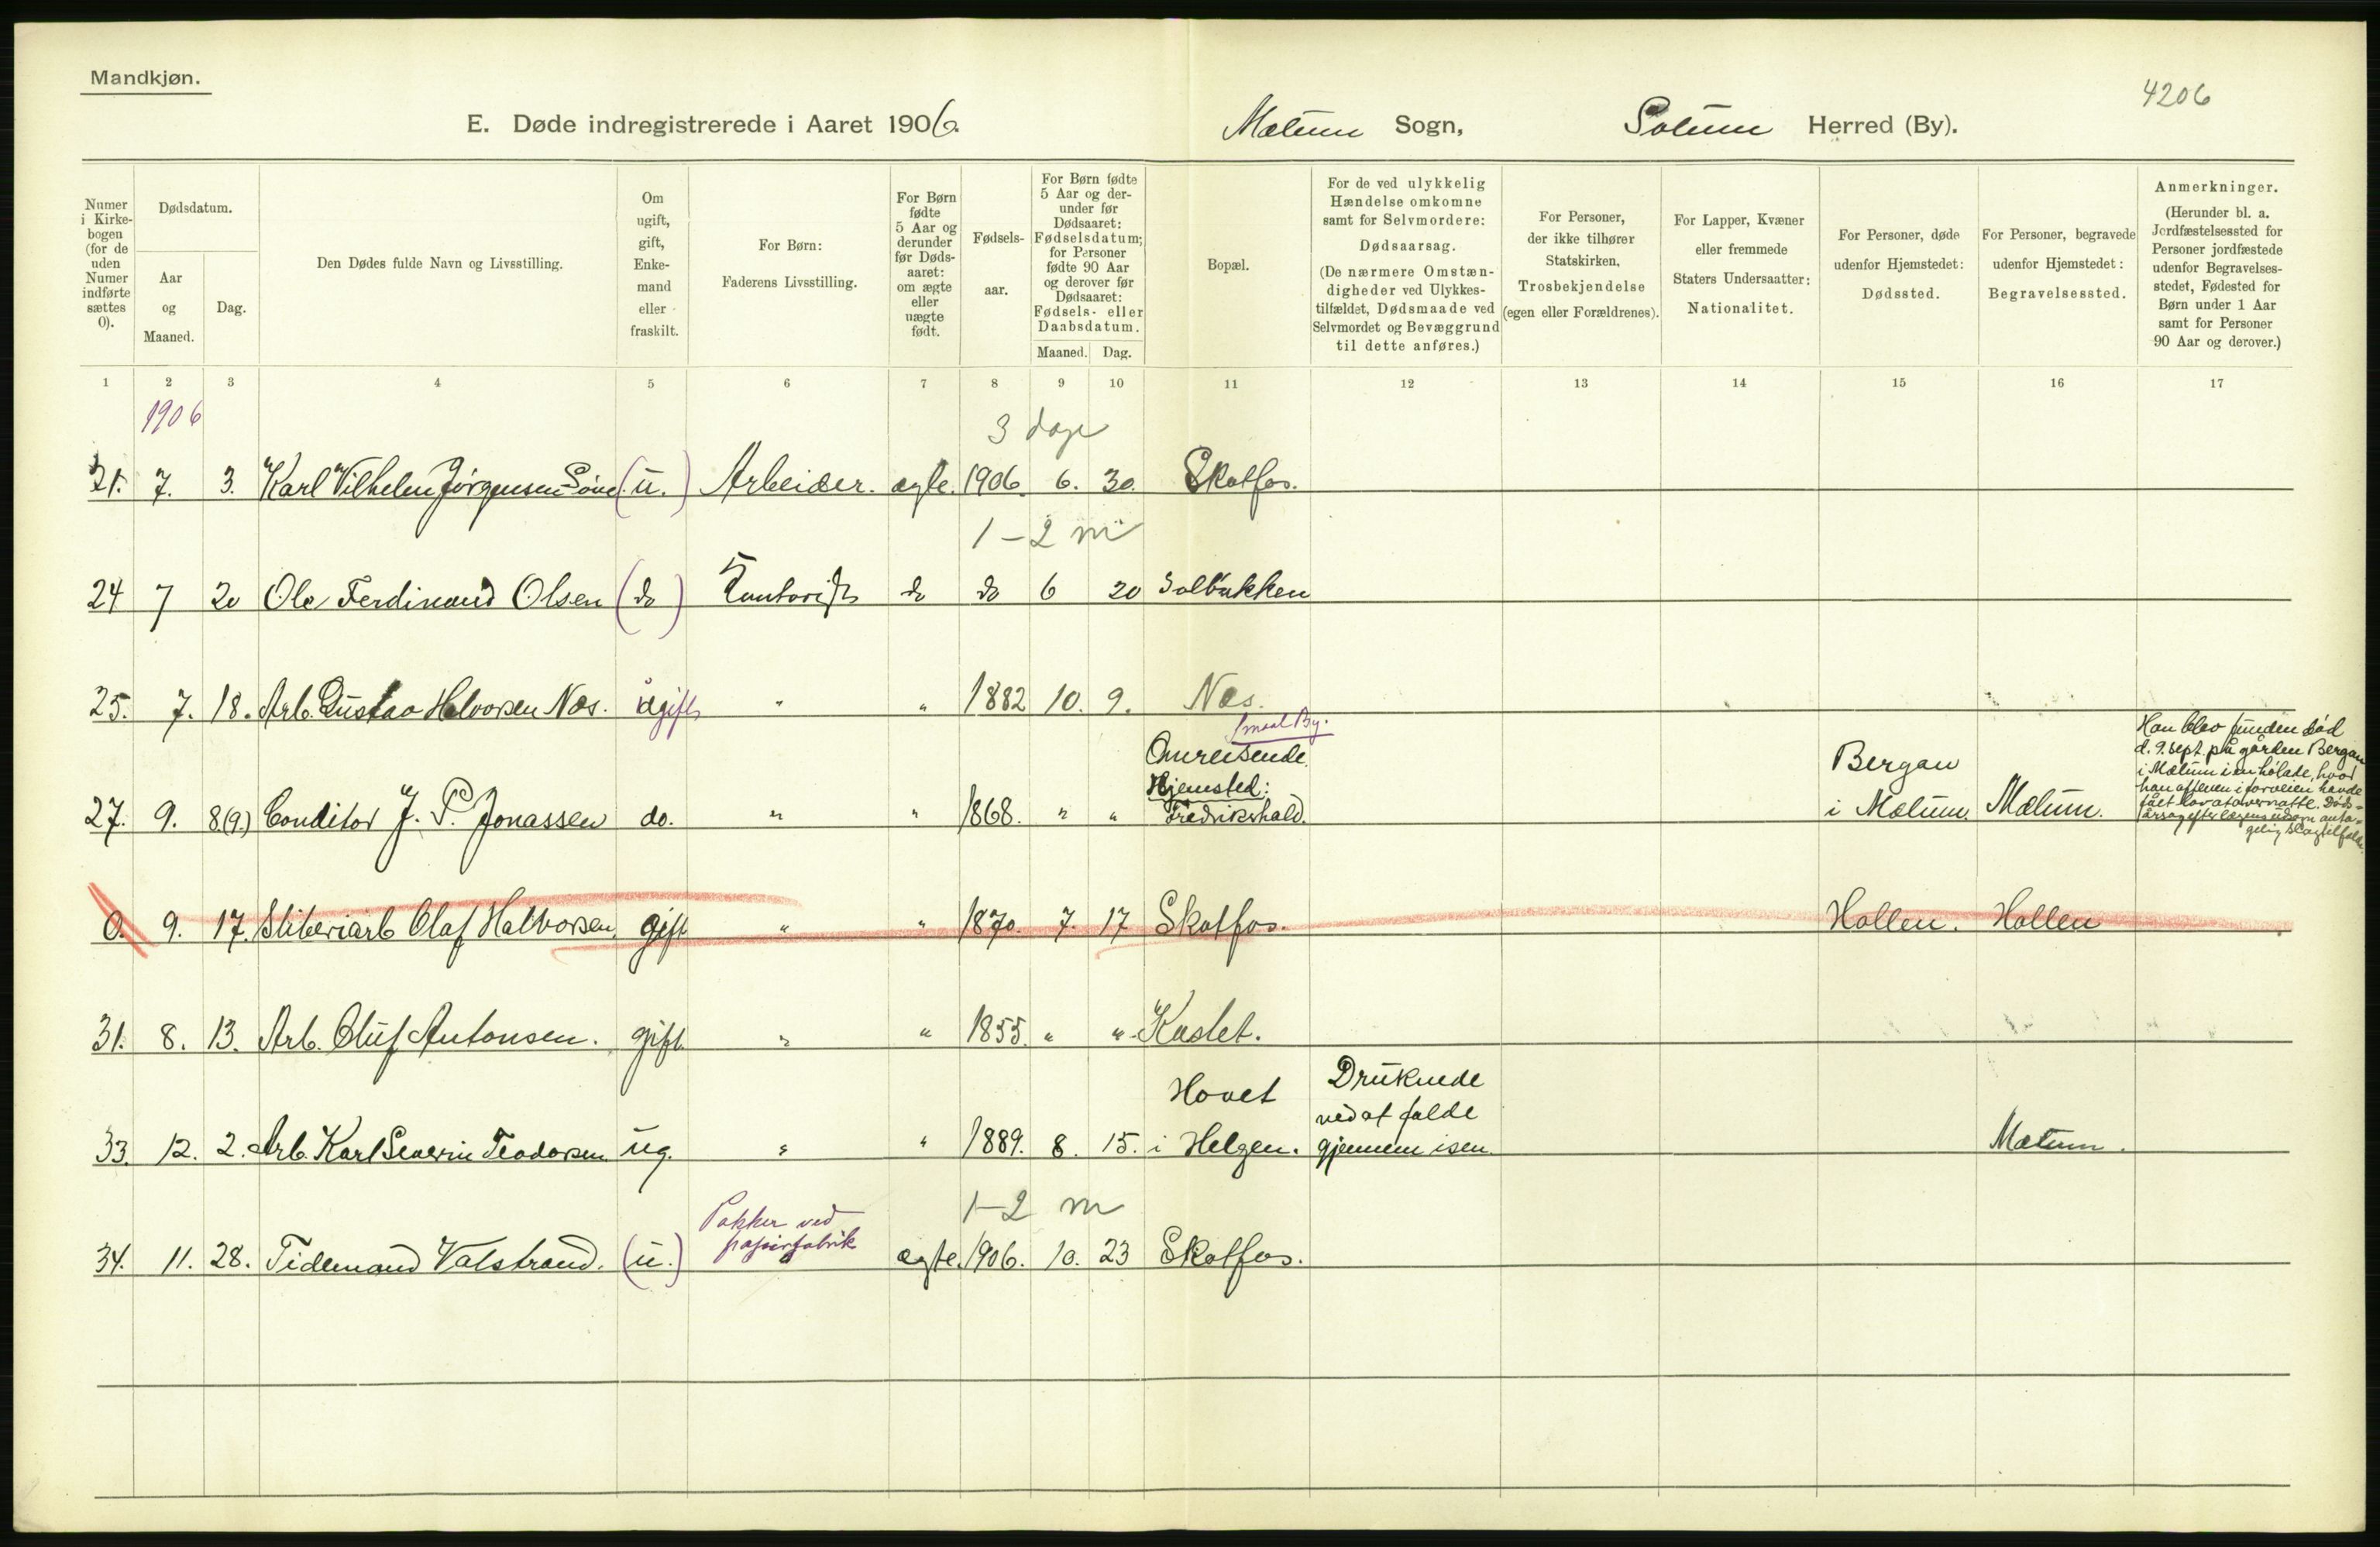 Mandkjøn.
4206
E. Døde indregistrerede i Aaret 1906. Mælum Sogn, Solum Herred (By).
Numer i Kirke-bogen (for de uden Numer indførte sættes 0).
Dødsdatum.
Aar og Maaned.
Dag.
Den Dødes fulde Navn og Livsstilling.
Om ugift, gift, Enke-mand eller fraskilt.
For Børn: Faderens Livsstilling.
For Børn fødte 5 Aar og derunder før Døds-aaret: om ægte eller uægte født.
Fødsels-aar.
For Børn fødte 5 Aar og der-under før Dødsaaret: Fødselsdatum; for Personer fødte 90 Aar og derover før Dødsaaret: Fødsels- eller Daabsdatum.
Maaned. Dag.
Bopæl.
For de ved ulykkelig Hændelse omkomne samt for Selvmordere: Dødsaarsag. (De nærmere Omstæn-digheder ved Ulykkes-tilfældet, Dødsmaade ved Selvmordet og Bevæggrund til dette anføres.)
For Personer, der ikke tilhører Statskirken, Trosbekjendelse (egen eller Forældrenes).
For Lapper, Kvæner eller fremmede Staters Undersaatter: Nationalitet.
For Personer, døde udenfor Hjemstedet: Dødssted.
For Personer, begravede udenfor Hjemstedet: Begravelsessted.
Anmerkninger. (Herunder bl. a. Jordfæstelsessted for Personer jordfæstede udenfor Begravelses-stedet, Fødested for Børn under 1 Aar samt for Personer 90 Aar og derover.)
1 2 3 4 5 6 7 8 9 10 11 12 13 14 15 16 17
1906
3 dage
21. 7. 3. Karl Vilhelm Jørgensen (u.) Arbeider. ægte. 1906. 6. 30. Skotfos.
1-2 m
24 7 20 Ole Ferdinand Olsen (do) Kontorist do do 6 20 Solbakken
25. 7. 18. Arb. Gustav Halvorsen Næs. ugift " " 1882 10. 9. Næs.
Smaal By.
27. 9. 8(9.) Conditor J. P. Jonassen do. " " 1868. " " Omreisende. Hjemsted: Fredrikshald. Bergan i Mælum. Mælum.
Han blev funden død
d. 9. sept. på gården Bergan
i Mælum i en hølade, hvor
han aftenen i forveien havde
fået lov at overnatte. Døds-
årsag efter lægens udsagn anta-
gelig slagtilfælde.
0. 9. 17. Sliberiarb Olaf Halvorsen gift " " 1870. 7. 17 Skotfos. Hollen. Hollen
31. 8. 13. Arb. Oluf Antonsen. gift " " 1855. " " Kastet.
33. 12. 2. Arb. Karl Severin Teodorsen ug. " " 1889. 8. 15. Hovet i Helgen. Druknede ved at falde gjennem isen. Mælum.
1-2 m
34. 11. 28. Tidemand Valstrand. (u.) Pakker ved papirfabrik ægte. 1906. 10. 23 Skotfos.